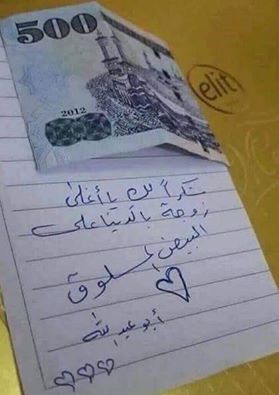 500
2012
elit
شكراً لك يا أغلى
زوجة بالدنيا على
البيض المسلوق
أبو عبد الله